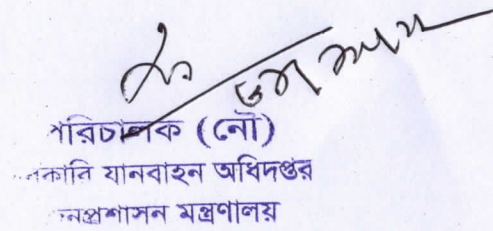 পরিচালক (নৌ)
কারি যানবাহন অধিদপ্তর
নপ্রশাসন মন্ত্রণালয়